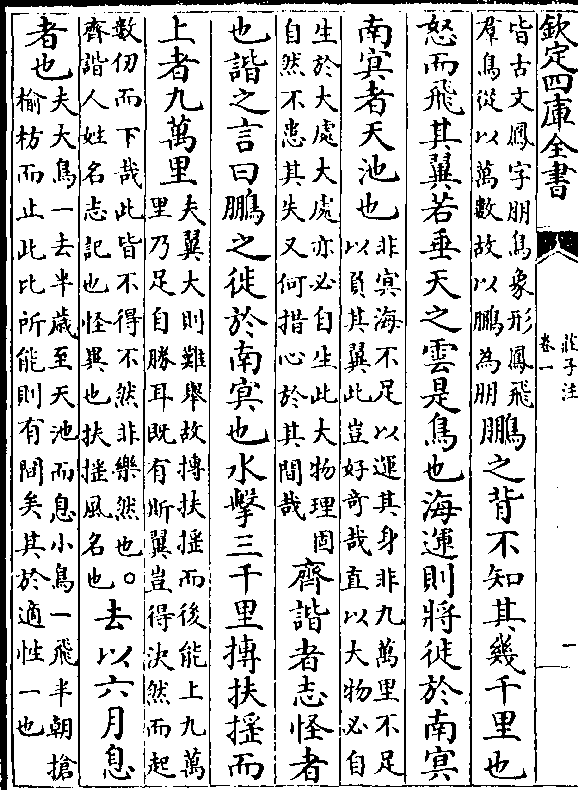 欽定四庫全書
莊子注
卷一
一
皆古文鳳字朋鳥象形鳳飛
羣鳥從以萬數故以鵬為朋
鵬之背不知其幾千里也
怒而飛其翼若垂天之雲是鳥也海運則將徙於南㝠
南㝠者天池也
非㝠海不足以運其身非九萬里不足
以負其翼此豈好奇哉直以大物必自
生於大處大處亦必自生此大物理固
自然不患其失又何措心於其間哉
齊諧者志怪者
也諧之言曰鵬之徙於南㝠也水擊三千里摶扶揺而
上者九萬里
夫翼大則難舉故摶扶揺而後能上九萬
里乃足自勝耳既有斯翼豈得決然而起
數仞而下哉此皆不得不然非樂然也。
齊諧人姓名志記也怪異也扶揺風名也
去以六月息
者也
夫大鳥一去半歳至天池而息小鳥一飛半朝搶
榆枋而止此比所能則有間矣其於適性一也